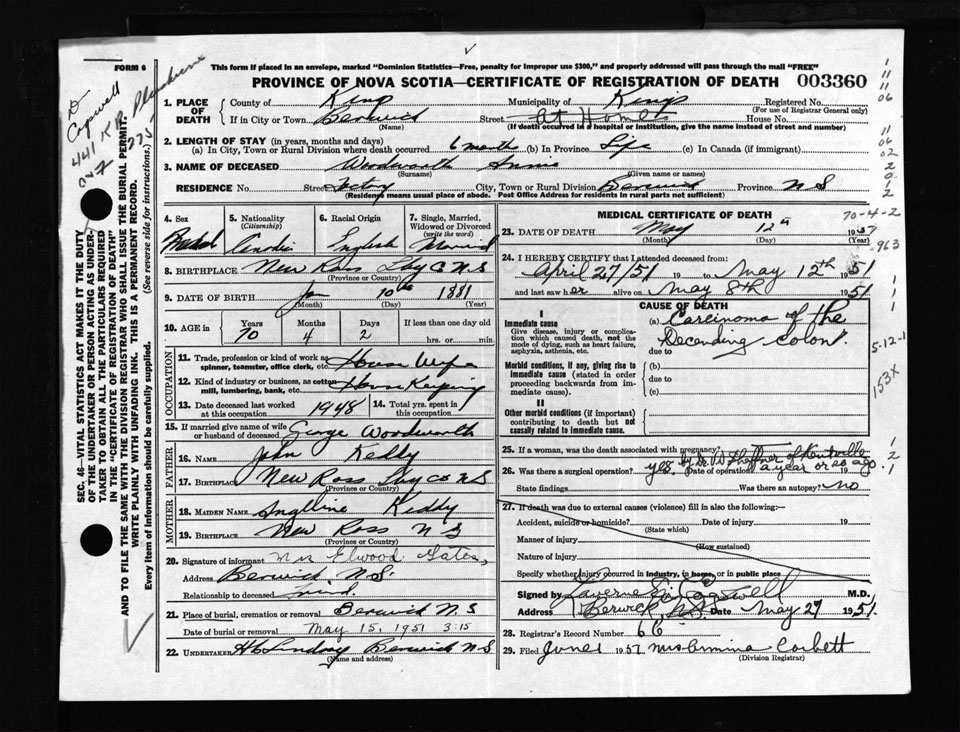 FORM 6
This form if placed in an envelope, marked "Dominion Statistics—Free, penalty for improper use $300," and properly addressed will pass through the mail "FREE"
PROVINCE OF NOVA SCOTIA—CERTIFICATE OF REGISTRATION OF DEATH 003360
1. PLACE OF DEATH County of Kings Municipality of Kings Registered No.
(For use of Registrar General only)
If in City or Town Berwick Street At Home House No.
(Name) (If death occurred in a hospital or institution, give the name instead of street and number)
2. LENGTH OF STAY (in years, months and days)
(a) In City, Town or Rural Division where death occurred 6 months (b) In Province Life (c) In Canada (if immigrant)
3. NAME OF DECEASED Woodworth Annie
(Surname) (Given name or names)
RESIDENCE No. Street City, Town or Rural Division Berwick Province N S
(Residence means usual place of abode. Post Office Address for residents in rural parts not sufficient)
4. Sex
5. Nationality (Citizenship)
6. Racial Origin English
7. Single, Married, Widowed or Divorced (write the word) Married
8. BIRTHPLACE New Ross Co N S
(Province or Country)
9. DATE OF BIRTH Jan 10th 1881
(Month) (Day) (Year)
10. AGE in Years Months Days If less than one day old
70 4 2 hrs. or min.
OCCUPATION
11. Trade, profession or kind of work as spinner, teamster, office clerk, etc. House Wife
12. Kind of industry or business, as cotton mill, lumbering, bank, etc. House Keeping
13. Date deceased last worked at this occupation 1948
14. Total yrs. spent in this occupation
15. If married give name of wife or husband of deceased George Woodworth
FATHER
16. Name John Keddy
17. Birthplace New Ross Co N S
(Province or Country)
MOTHER
18. MAIDEN NAME Angelline Keddy
19. BIRTHPLACE New Ross N S
(Province or Country)
20. Signature of informant Mrs Elwood Gates,
Address Berwick N.S.
Relationship to deceased Friend.
21. Place of burial, cremation or removal Berwick N.S
Date of burial or removal May 15, 1951 3:15
22. UNDERTAKER H C Lindsay Berwick N S
(Name and address)
MEDICAL CERTIFICATE OF DEATH
23. DATE OF DEATH May 12th 1951
(Month) (Day) (Year)
24. I HEREBY CERTIFY that I attended deceased from:
April 27/51 19 to May 12th 1951
and last saw her alive on May 8th 1951
CAUSE OF DEATH
I
Immediate cause
Give disease, injury or complication which caused death, not the mode of dying, such as heart failure, asphyxia, asthenia, etc.
(a) Carcinoma of the
Decending Colon.
due to
Morbid conditions, if any, giving rise to immediate cause (stated in order proceeding backwards from immediate cause).
(b)
due to
(c)
II
Other morbid conditions (if important) contributing to death but not causally related to immediate cause.
25. If a woman, was the death associated with pregnancy?
26. Was there a surgical operation? yes by Dr. of Kentville
Date of operation a year or so ago 19
State findings Was there an autopsy? no
27. If death was due to external causes (violence) fill in also the following:—
Accident, suicide or homicide? Date of injury 19
(State which)
Manner of injury
(How sustained)
Nature of injury
Specify whether injury occurred in industry, in home, or in public place
Signed by Cogswell M.D.
Address Berwick, N.S. Date May 27 1951
28. Registrar's Record Number 66
29. Filed June 1 1951 Mrs Ermina Corbett
(Division Registrar)
SEC. 46—VITAL STATISTICS ACT MAKES IT THE DUTY
OF THE UNDERTAKER OR PERSON ACTING AS UNDER-
TAKER TO OBTAIN ALL THE PARTICULARS REQUIRED
IN THE "CERTIFICATE OF REGISTRATION OF DEATH"
AND TO FILE THE SAME WITH THE DIVISION REGISTRAR WHO SHALL ISSUE THE BURIAL PERMIT.
WRITE PLAINLY WITH UNFADING INK. THIS IS A PERMANENT RECORD.
Every item of information should be carefully supplied. (See reverse side for instructions.)
70-4-2
963
5-12-1
153X